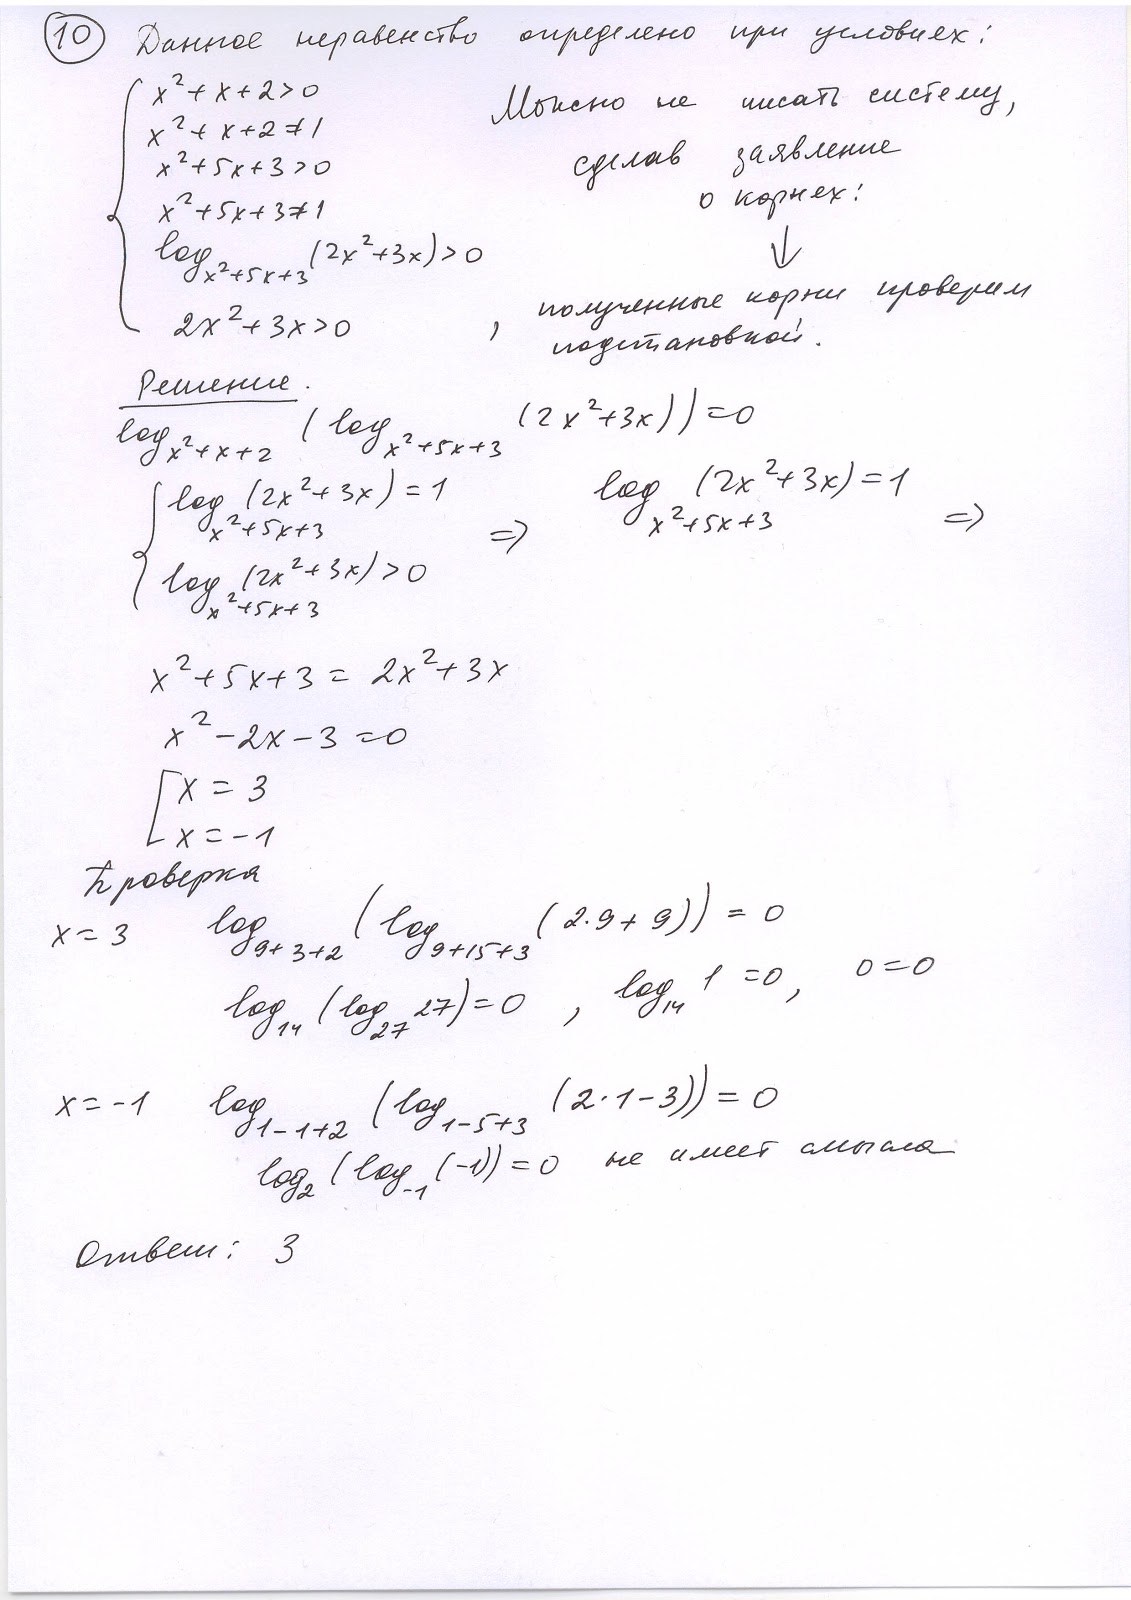 10 Данное неравенство определено при условиях:
x²+x+2>0
x²+x+2≠1
x²+5x+3>0
x²+5x+3≠1
log_{x²+5x+3}(2x²+3x)>0
2x²+3x>0
Можно не писать систему,
сделав заявление
о корнях:
↓
, полученные корни проверим
подстановкой.
Решение.
log_{x²+x+2} (log_{x²+5x+3} (2x²+3x))=0
log_{x²+5x+3} (2x²+3x)=1
log_{x²+5x+3} (2x²+3x)>0
=> log_{x²+5x+3} (2x²+3x)=1 =>
x²+5x+3 = 2x²+3x
x²-2x-3=0
x=3
x=-1
Проверка
x=3 log_{9+3+2} (log_{9+15+3} (2·9+9)) = 0
log_{14} (log_{27} 27)=0 , log_{14} 1 =0, 0=0
x=-1 log_{1-1+2} (log_{1-5+3} (2·1-3))=0
log_{2} (log_{-1} (-1))=0 не имеет смысла
Ответ: 3